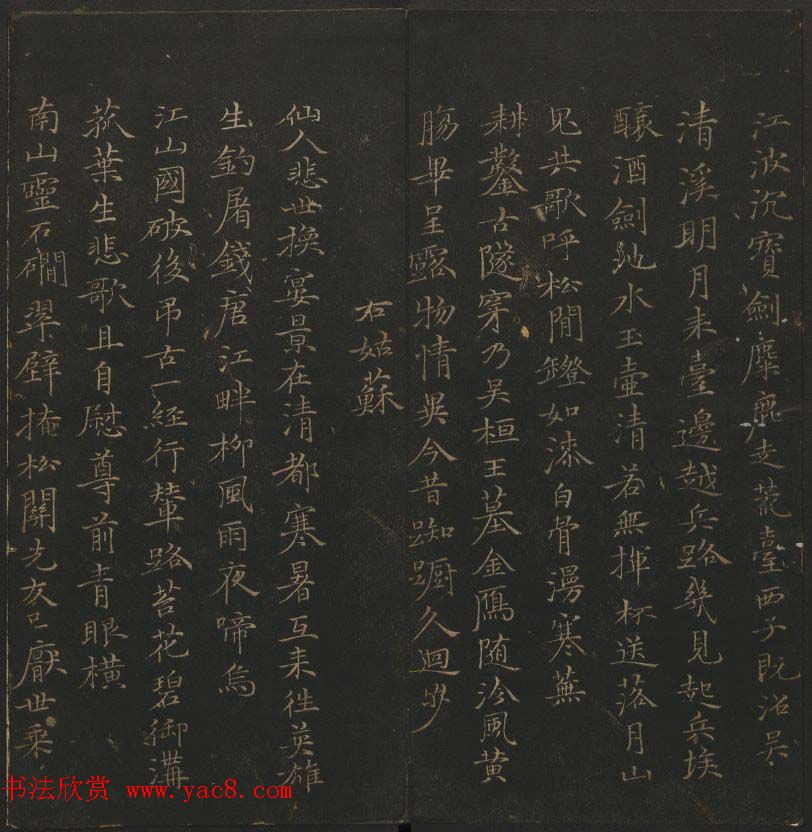 江波沉寶劍麋鹿走荒臺西子既沼吳
清溪明月來臺邊越兵路幾見起兵埃
釃酒劍池水玉壺清若無揮杯送落月山
見共歌呼松間鐙如漆白骨漫寒蕪
耕鑿古隧穿乃吳桓王墓金鴈随泠風黄
腸畢呈露物情異今昔踟蹰久迴步
右姑蘇
仙人悲世換宴景在清都寒暑互來往英雄
生釣屠錢唐江畔柳風雨夜啼烏
江山國破後弔古一經行輦路苔花碧御溝
菰葉生悲歌且自慰尊前青眼橫
南山靈石磵翠壁掩松關先友已厭世乘
书法欣赏 www.yac8.com